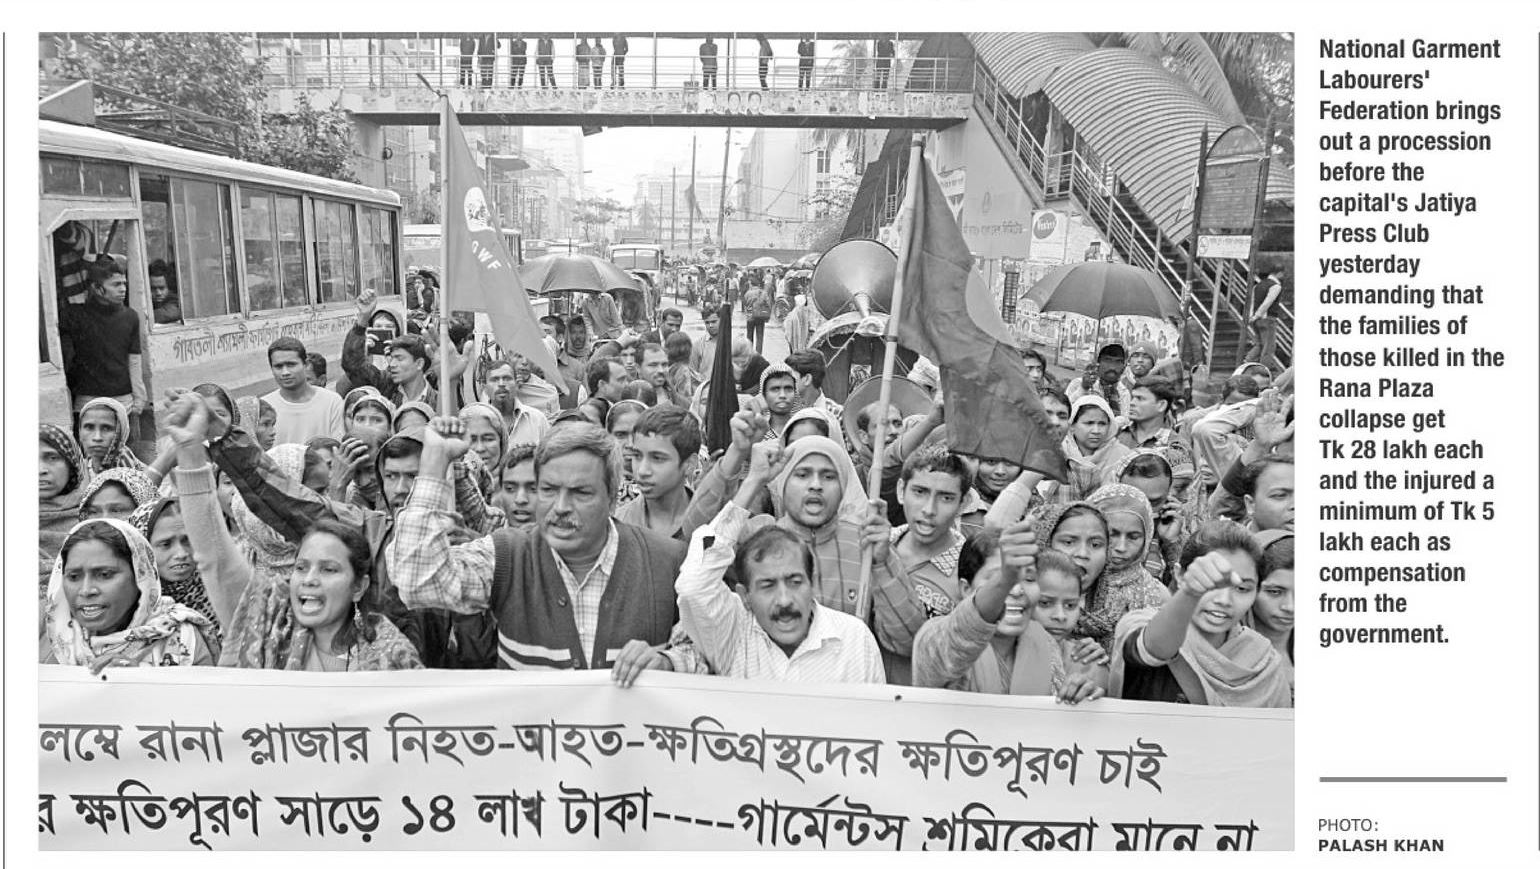 GWF
গাবতলী শ্যামলী ফার্মগেট
লম্বে রানা প্লাজার নিহত-আহত-ক্ষতিগ্রস্থদের ক্ষতিপূরণ চাই
র ক্ষতিপূরণ সাড়ে ১৪ লাখ টাকা----গার্মেন্টস শ্রমিকেরা মানে না
National Garment
Labourers'
Federation brings
out a procession
before the
capital's Jatiya
Press Club
yesterday
demanding that
the families of
those killed in the
Rana Plaza
collapse get
Tk 28 lakh each
and the injured a
minimum of Tk 5
lakh each as
compensation
from the
government.
PHOTO:
PALASH KHAN